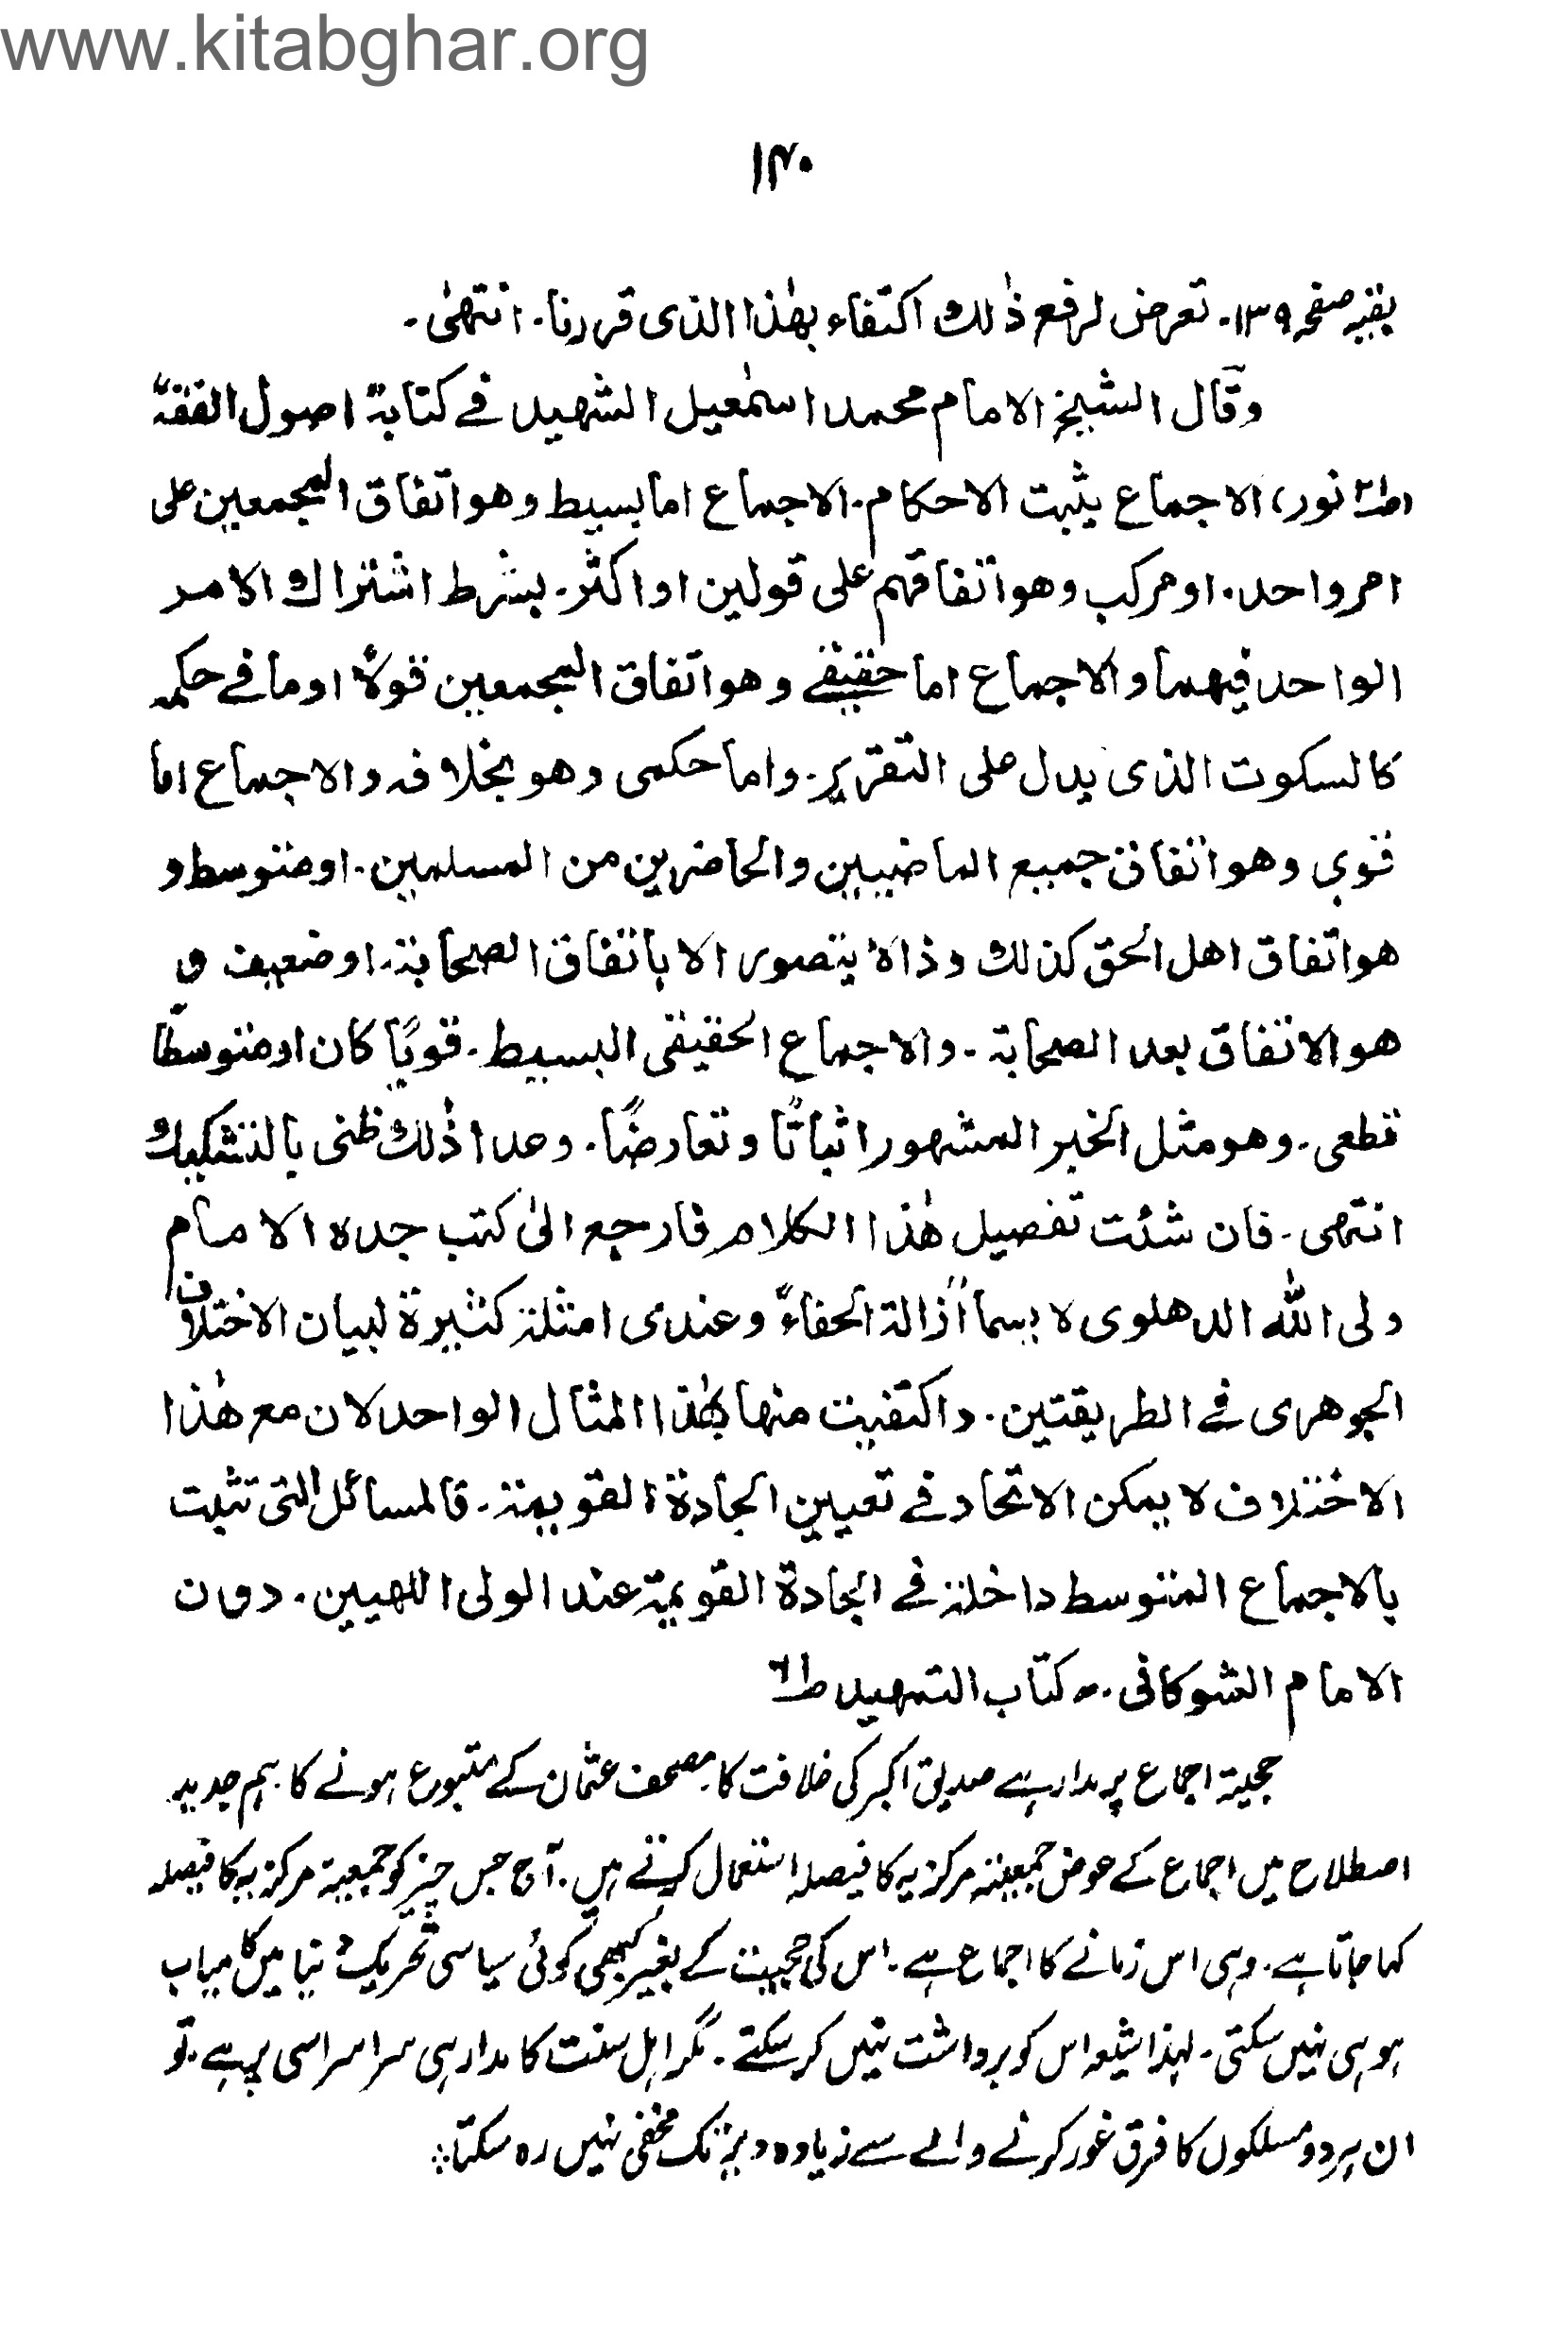 www.kitabghar.org
۱۴۰
بقیہ صفحہ ۱۳۹۔ تعرض لرفع ذٰلك اكتفاء بهٰذا الذى قررنا۔ انتهىٰ۔
وقال الشيخ الامام محمد اسمٰعيل الشهيد فے كتابة اصول الفقة"
نور) الاجماع يثبت الاحكام۔ الاجماع اما بسيط وهو اتفاق المجمعين على
امر واحد۔ او مركب وهو اتفاقهم على قولين او اكثر۔ بشرط اشتراك الامر
الواحد فيهما والاجماع اما حقيقے وهو اتفاق المجمعين قولاً او ما فے حكمه
كالسكوت الذى يدل على التقرير۔ واما حكمى وهو بخلافه والاجماع اما
قوى وهو اتفاق جميع الماضيين والحاضرين من المسلمين۔ او متوسط و
هو اتفاق اهل الحق كذلك وذا لا يتصور الا باتفاق الصحابة۔ او ضعيف و
هو الاتفاق بعد الصحابة۔ والاجماع الحقيقى البسيط۔ قويًا كان او متوسطًا
قطعى۔ وهو مثل الخبر المشهور اثباتًا وتعارضًا۔ وعدا ذٰلك ظنى بالتشكيك
انتهى۔ فان شئت تفصيل هٰذا الكلام فارجع الىٰ كتب جده الامام
ولى الله الدهلوى لا يسما "ازالة الخفاء" وعندى امثلة كثيرة لبيان الاختلاف
الجوهرى فے الطريقتين۔ واكتفيت منها بهٰذا المثال الواحد لان مع هٰذا
الاختلاف لا يمكن الاتحاد فے تعيين الجادة القويمة۔ فالمسائل التى تثبت
بالاجماع المتوسط داخلة فے الجادة القويمة عند الولى اللهيين۔ دون
الامام الشوكانى۔ كتاب التمهيد
حجیۃ اجماع پر مدار ہے صدیق اکبر کی خلافت کا۔ مصحف عثمان کے متبوع ہونے کا۔ ہم جدید
اصطلاح میں اجماع کے عوض جمعیۃ مرکزیہ کا فیصلہ استعمال کرتے ہیں۔ آج جس چیز کو جمعیۃ مرکزیہ کا فیصلہ
کہا جاتا ہے۔ وہی اس زمانے کا اجماع ہے۔ اس کی حجیت کے بغیر کبھی کوئی سیاسی تحریک دنیا میں کامیاب
ہو ہی نہیں سکتی۔ لہٰذا شیعہ اس کو برداشت نہیں کر سکتے۔ مگر اہل سنت کا مدار ہی سراسر اسی پر ہے۔ تو
ان ہر دو مسلکوں کا فرق غور کرنے والے سے زیادہ دیر تک مخفی نہیں رہ سکتا؞